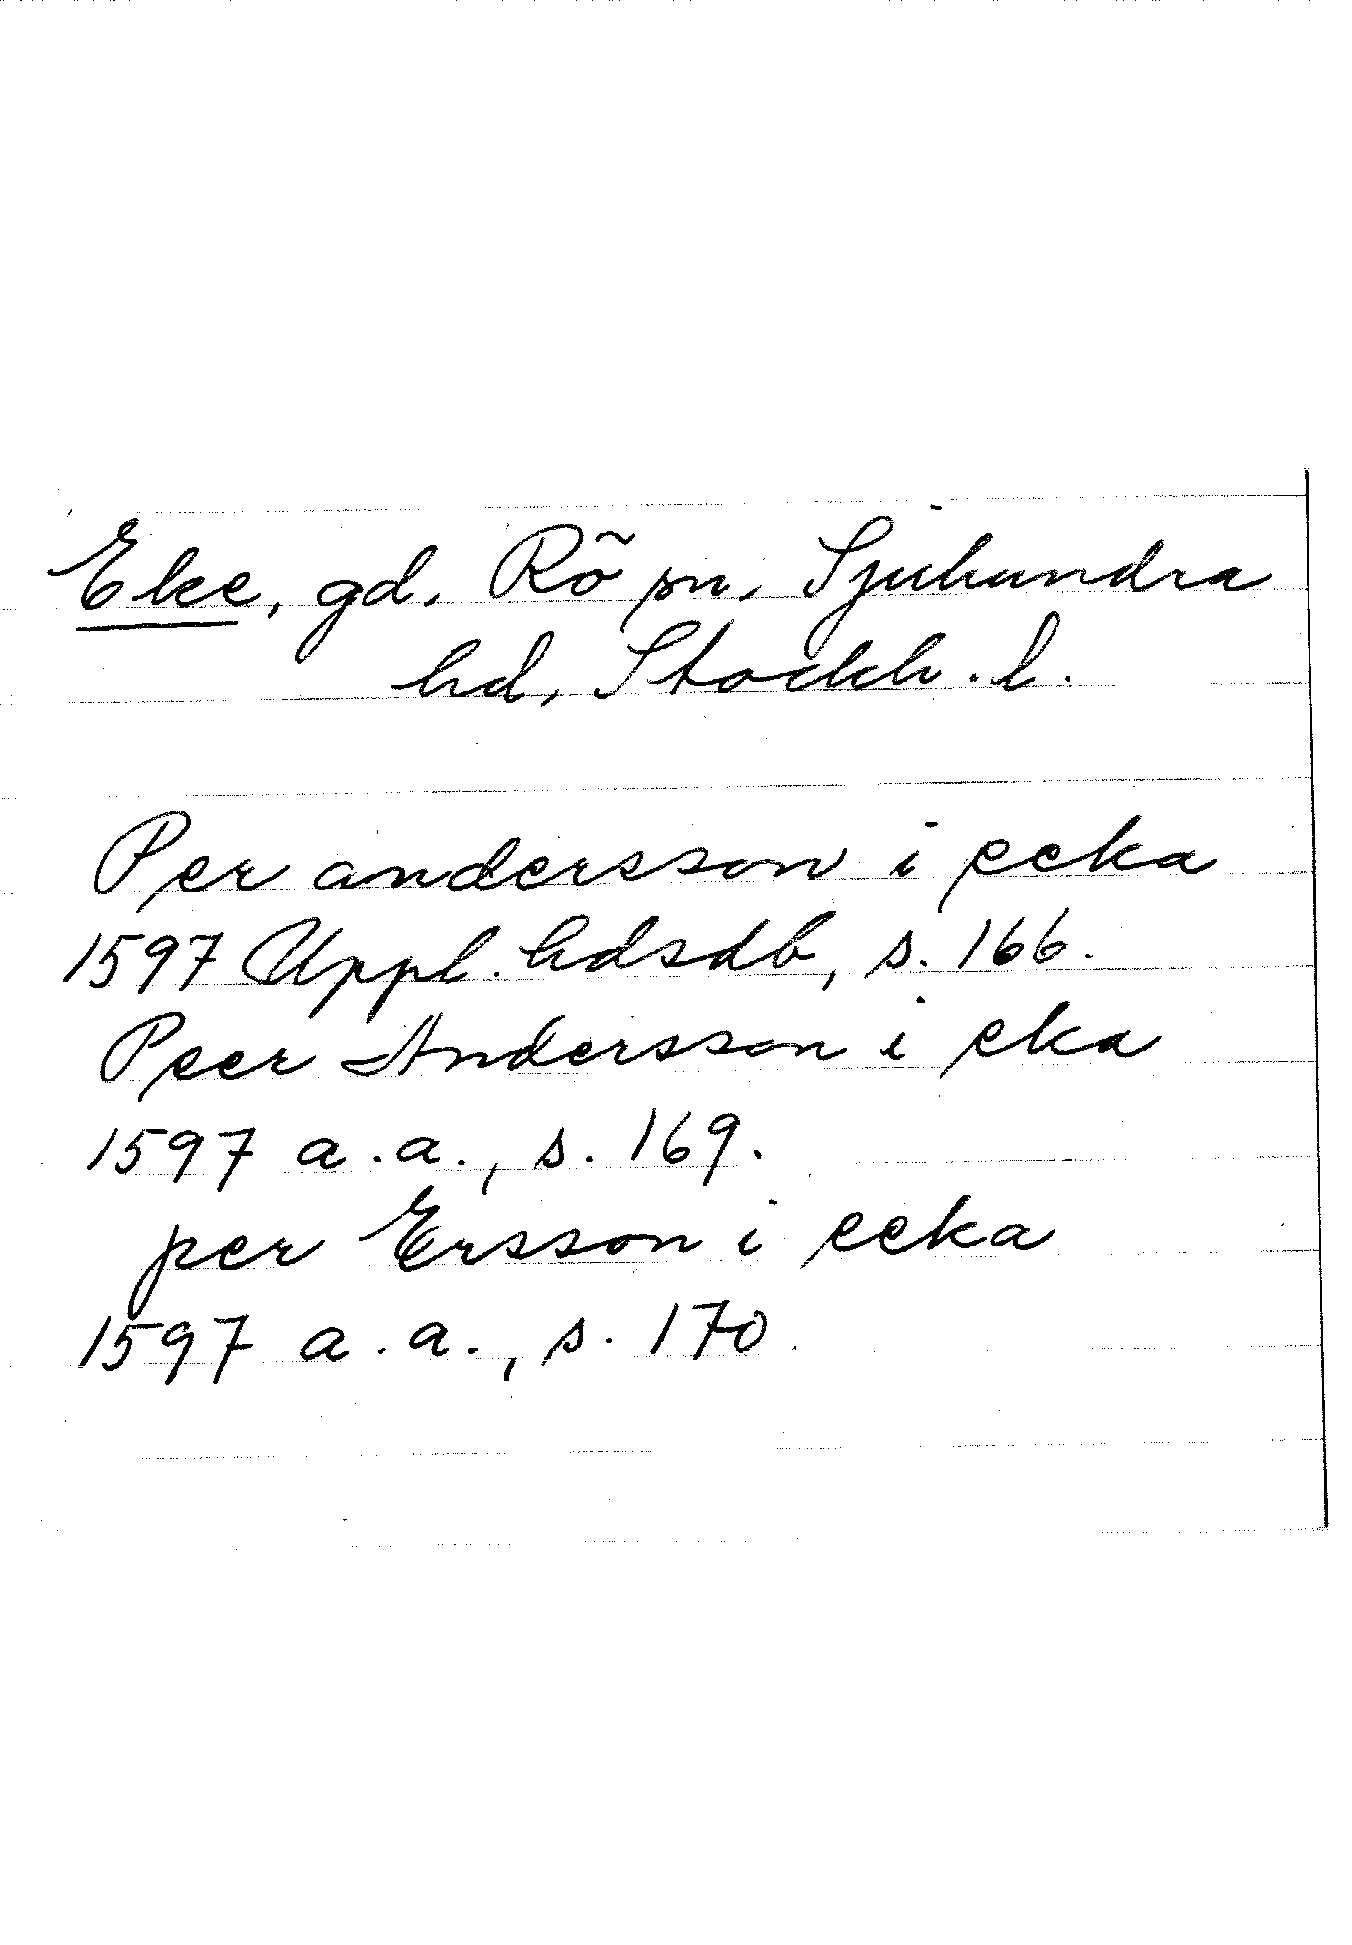 Eke, gd. Rö sn, Sjuhundra
hd, Stockh. l.
Per andersson i eeka
1597 Uppl. hdsdb, s. 166.
Peer Andersson i eka
1597 a.a., s. 169.
per Ersson i eeka
1597 a.a., s. 170